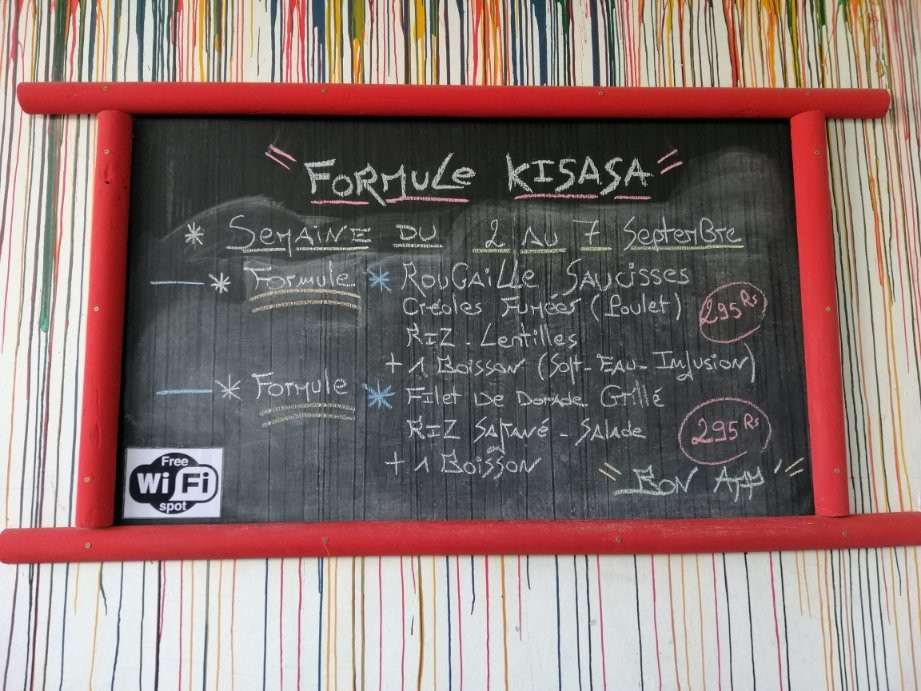 "FORMULE KISASA"
* SEMAINE DU 2 AU 7 SEPTEMBRE
— * FORMULE * ROUGAILLE SAUCISSES
CRÉOLES FUMÉES (POULET) 295 Rs
RIZ - LENTILLES
+ 1 BOISSON (SOFT - EAU - INFUSION)
— * FORMULE * FILET DE DORADE GRILLÉ
RIZ SAFRANÉ - SALADE 295 Rs
+ 1 BOISSON
"BON APP"
Free
Wi Fi
spot